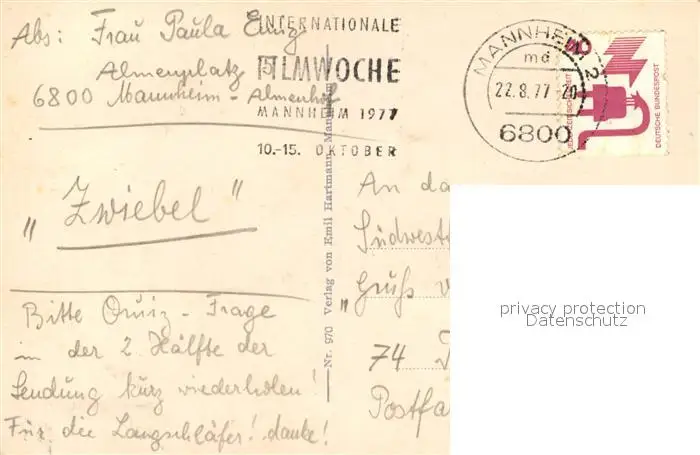 Abs: Frau Paula
Almenplatz
6800 Mannheim - Almenhof
INTERNATIONALE
FILMWOCHE
MANNHEIM 1977
10.-15. OKTOBER
MANNHEIM 2
md
22.8.77-20
6800
50
JEDERZEIT SICHERHEIT
DEUTSCHE BUNDESPOST
"Zwiebel"
Bitte Quiz-Frage
in der 2. Hälfte der
Sendung kurz wiederholen!
Für die Langschläfer! danke!
Nr. 970 Verlag von Emil Hartmann, Mannheim
An da
Südwest
"Gruß v
74
Postfa
privacy protection
Datenschutz